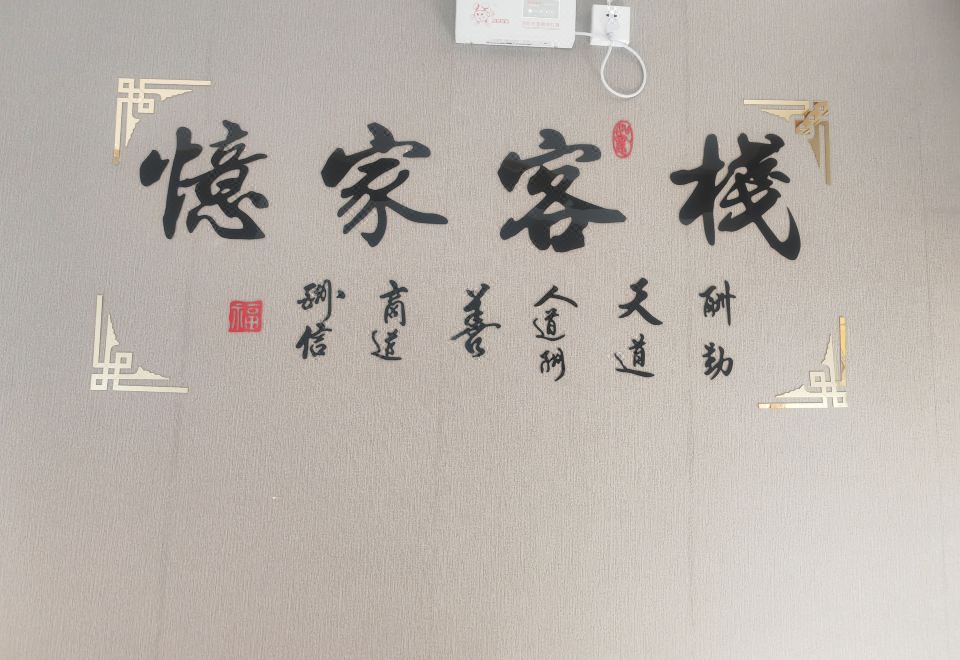 憶家客棧
酬勤
天道
人道酬
善
商道
酬信
福